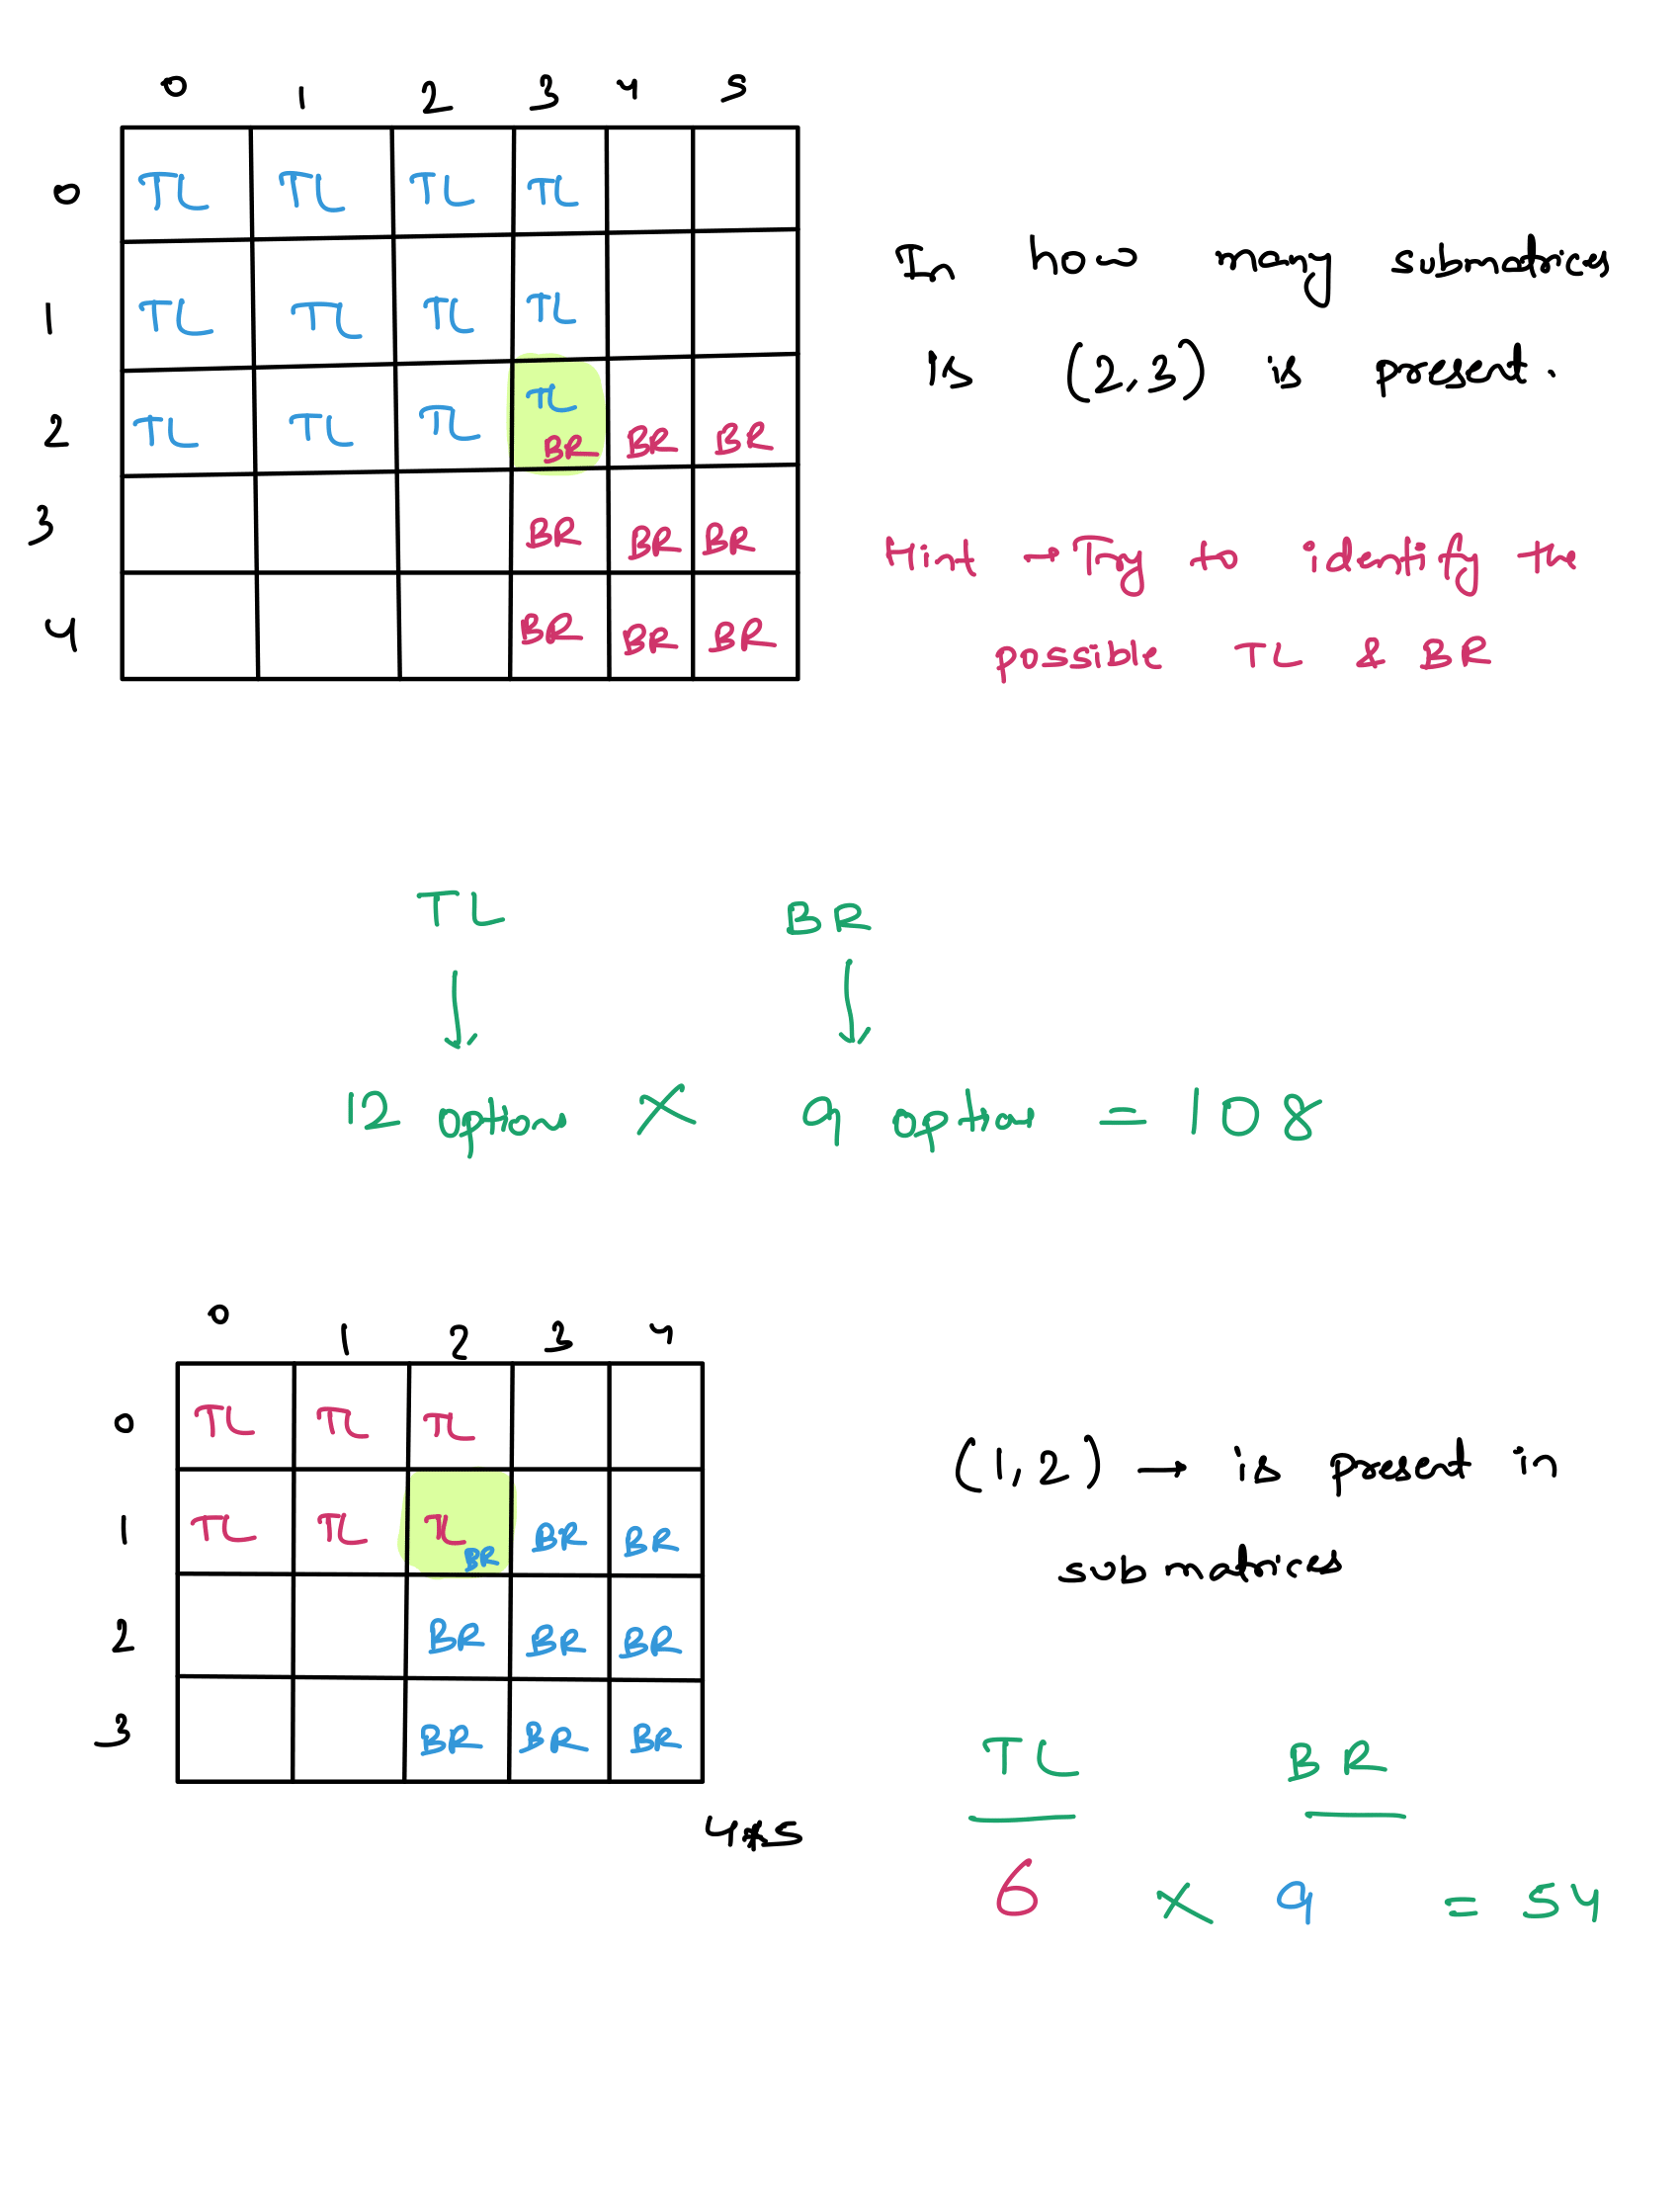 0 1 2 3 4 5
0 TL TL TL TL
1 TL TL TL TL
2 TL TL TL TL BR BR BR
3 BR BR BR
4 BR BR BR
In how many submatrices
is (2,3) is present.
Hint → Try to identify the
possible TL & BR
TL BR
↓ ↓
12 option × 9 option = 108
0 1 2 3 4
0 TL TL TL
1 TL TL TL BR BR BR
2 BR BR BR
3 BR BR BR
4*5
(1,2) → is present in
submatrices
TL BR
6 × 9 = 54